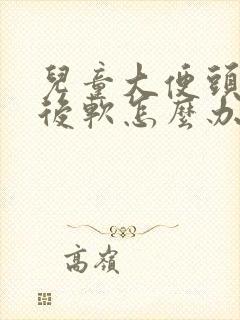 兒童大便頭
後軟怎麼办
高嶺